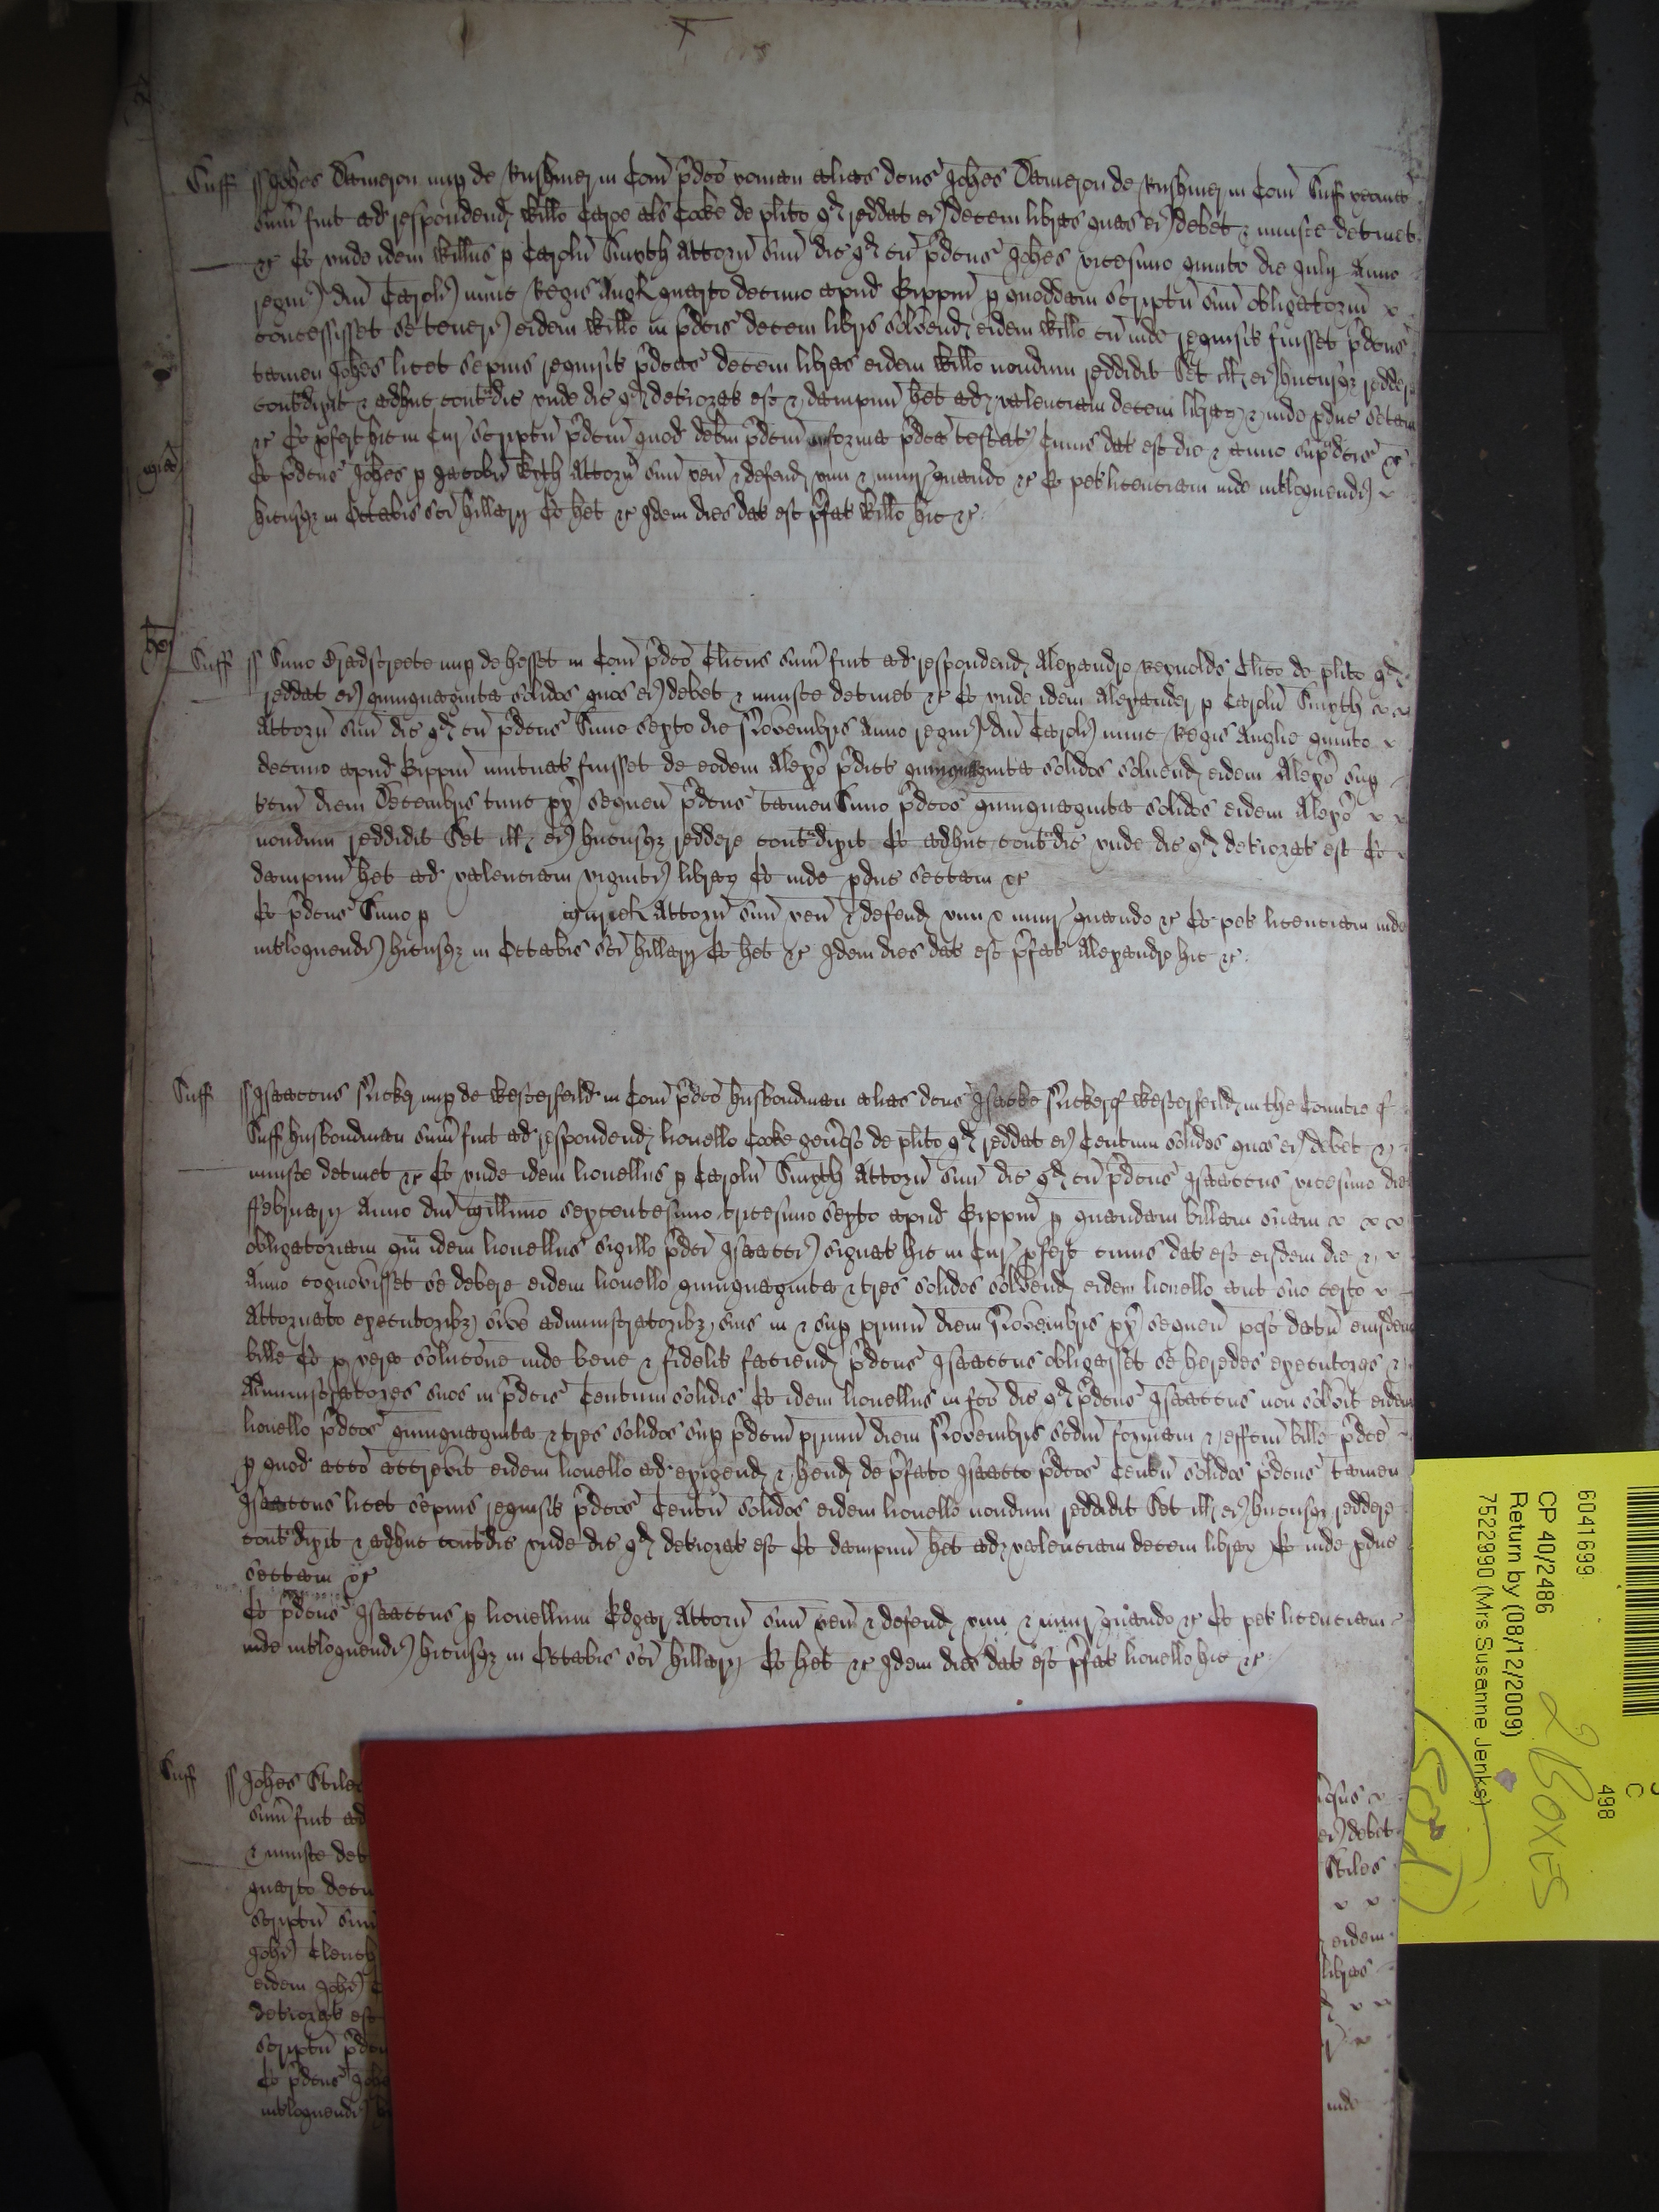 Suff ss Johes Dameron nup de Rushmer in Com pdco yoman alias dcus Johes Dameron de Rushmer in Com Suff yeoman
sum fuit ad respondend Willo Cage als Cooke de plito qd reddat ei decem libras quas ei debet & iniuste detinet
&c Et unde idem Willus p Carolu Smyth Attorn suu dic qd cu pdcus Johes vicesimo quinto die Julij Anno
regni dni Caroli nunc Regis Angl quarto decimo apud Gippm p quoddam scriptu suu obligatoriu
concessisset se teneri eidem Willo in pdcis decem libris solvend eidem Willo cu inde requisit fuisset pdcus
tamen Johes licet sepius requisit pdcas decem libras eidem Willo nondum reddidit Set ill ei hucusqz reddere
contdixit & adhuc contdic unde dic qd deteriorat est & dampnu het ad valenciam decem librar & inde pduc sectam
&c Et pfert hic in Cur scriptu pdcm quod debm pdcm in forma pdca testat Cuius dat est die & anno supdcis &c
Et pdcus Johes p Jacobu Attorn suu ven & defend vim & iniur quando &c Et pet licenciam inde intloquendi
hicusqz in Octabis sci Hillarij Et het &c Idem dies dat est pfat Willo hic &c
Suff ss Simo Bradstreete nup de Hesset in Com pdco Clicus sum fuit ad respondend Alexandro Reynolds Clico de plito qd
reddat ei quinquaginta solidos quos ei debet & iniuste detinet &c Et unde idem Alexander p Carolu Smyth
Attorn suu dic qd cu pdcus Simo sexto die Novembris Anno regni dni Caroli nunc Regis Anglie quinto
decimo apud Gippm mutuat fuisset de eodem Alexo pdict quinquaginta solidos solvend eidem Alexo sup
diem Decembris tunc px sequen pdcus tamen Simo pdcos quinquaginta solidos eidem Alexo
nondum reddidit Set ill ei hucusqz reddere contdixit Et adhuc contdic unde dic qd deteriorat est Et
dampnu het ad valenciam viginti librar Et inde pduc sectam &c
Et pdcus Simo p Attorn suu ven & defend vim & iniur quando &c Et pet licenciam inde
intloquendi hicusqz in Octabis sci Hillarij Et het &c Idem dies dat est pfat Alexandro hic &c
Suff ss Isaaccus nup de Westerfeild in Com pdco husbondman alias dcus Isacke of Westerfeild in the Countie of
Suff husbondman sum fuit ad respondend Lionello Cooke genoso de plito qd reddat ei Centum solidos quos ei debet &
iniuste detinet &c Et unde idem Lionellus p Carolu Smyth Attorn suu dic qd cu pdcus Isaaccus vicesimo die
ffebruarij Anno dni Millimo sexcentesimo tricesimo sexto apud Gippm p quandam billam suam
obligatoriam qm idem Lionellus sigillo pdci Isaacci signat hic in Cur pfert cuius dat est eisdem die &
Anno cognovisset se debere eidem Lionello quinquaginta & tres solidos solvend eidem Lionello aut suo certo
Attornato executoribz sive administratoribz suis in & sup primu diem Novembris px sequen post datu eiusdem
bille Et p vera soluccoe inde bene & fidelit faciend pdcus Isaaccus obligasset se heredes executores &
Administratores suos in pdcis Centum solidis Et idem Lionellus in fco dic qd pdcus Isaaccus non solvit eidem
Lionello pdcos quinquaginta & tres solidos sup pdcm primu diem Novembris scdm formam & effcm bille pdce
p quod acco accrevit eidem Lionello ad exigend & hend de pfato Isaacco pdcos Centu solidos pdcus tamen
Isaaccus licet sepius requisit pdcos Centu solidos eidem Lionello nondum reddidit Set ill ei hucusqz reddere
contdixit & adhuc contdic unde dic qd deteriorat est Et dampnu het ad valenciam decem librar Et inde pduc
sectam &c
Et pdcus Isaaccus p Lionellum Edgar Attorn suu ven & defend vim & iniur quando &c Et pet licenciam
inde intloquendi hicusqz in Octabis sci Hillarij Et het &c Idem dies dat est pfat Lionello hic &c
Suff ss Johes Stiles
sum fuit ad ei debet
& iniuste det Stiles
quarto deci
scriptu suu
Johi Clench eidem
eidem Johi libras
deteriorat est
scriptu pdcm
Et pdcus Johes
intloquendi inde
6041699
CP 40/2486
Return by (08/12/2009)
7522990 (Mrs Susanne Jenks)
498
C
2 BOXES